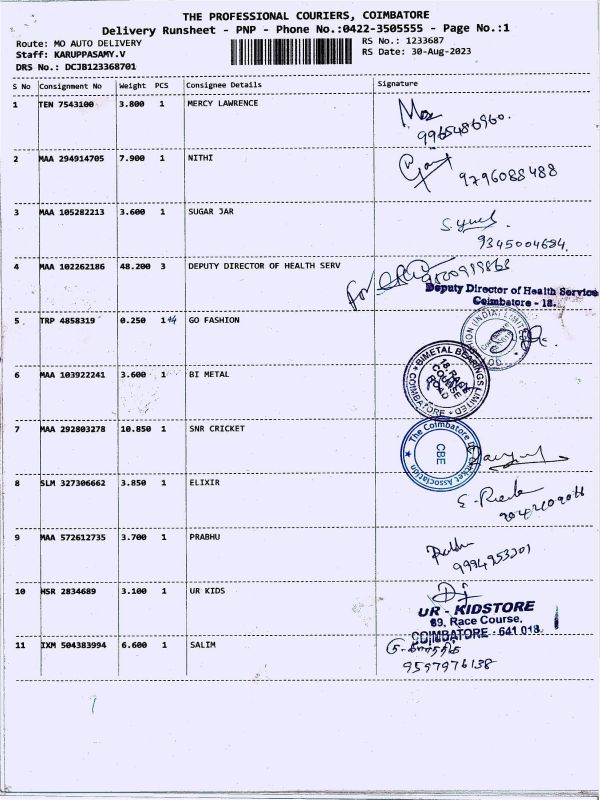 THE PROFESSIONAL COURIERS, COIMBATORE
Delivery Runsheet - PNP - Phone No.:0422-3505555 - Page No.:1
Route: MO AUTO DELIVERY
Staff: KARUPPASAMY.V
DRS No.: DCJB123368701
RS No.: 1233687
RS Date: 30-Aug-2023
S No Consignment No Weight PCS Consignee Details Signature
1 TEN 7543100 3.800 1 MERCY LAWRENCE
9965486960.
2 MAA 294914705 7.900 1 NITHI
9796088488
3 MAA 105282213 3.600 1 SUGAR JAR
9345004684.
4 MAA 102262186 48.200 3 DEPUTY DIRECTOR OF HEALTH SERV
For
Deputy Director of Health Services
Coimbatore - 18.
5 TRP 4858319 0.250 1 GO FASHION
6 MAA 103922241 3.600 1 BI METAL
BIMETAL BEARINGS LIMITED
COIMBATORE
18 RACE
COURSE
ROAD
7 MAA 292803278 10.850 1 SNR CRICKET
The Coimbatore District Cricket Association
CBE
8 SLM 327306662 3.850 1 ELIXIR
9 MAA 572612735 3.700 1 PRABHU
Prabhu
9994953201
10 HSR 2834689 3.100 1 UR KIDS
UR - KIDSTORE
89, Race Course,
COIMBATORE - 641 018.
11 IXM 504383994 6.600 1 SALIM
9597976138